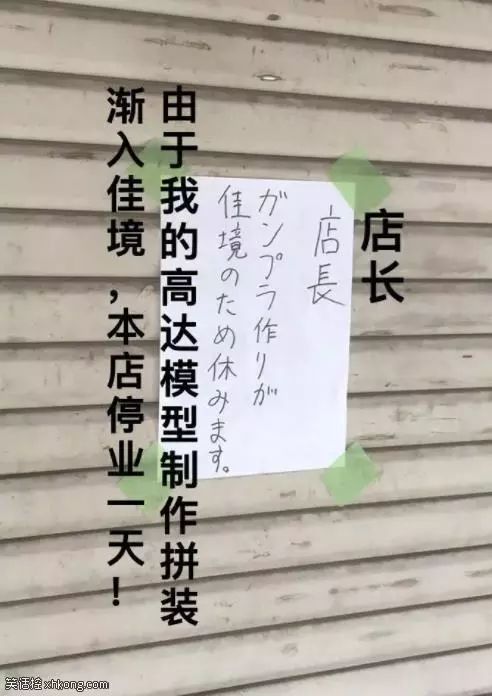 店长
由于我的高达模型制作拼装
渐入佳境，本店停业一天！
店長
ガンプラ作りが
佳境のため休みます。
笑话绘 xhkong.com